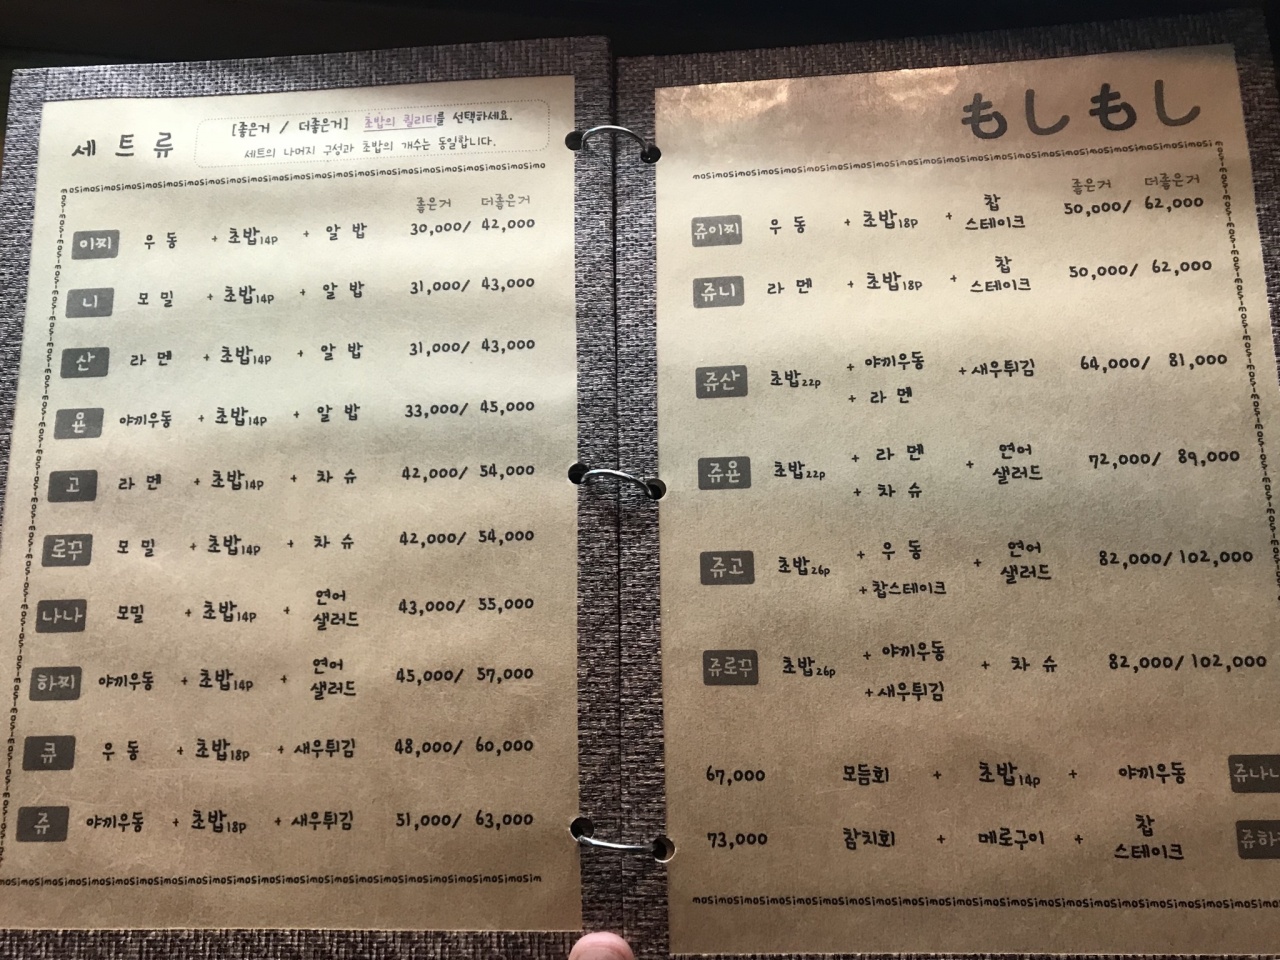 세트류
[좋은거 / 더좋은거] 초밥의 퀄리티를 선택하세요.
세트의 나머지 구성과 초밥의 개수는 동일합니다.
mosimosimosimosimosimosimosimosimosimosimosimosimosimosimo
좋은거 더좋은거
이찌 우동 + 초밥14p + 알밥 30,000/ 42,000
니 모밀 + 초밥14p + 알밥 31,000/ 43,000
산 라멘 + 초밥14p + 알밥 31,000/ 43,000
욘 야끼우동 + 초밥14p + 알밥 33,000/ 45,000
고 라멘 + 초밥14p + 차슈 42,000/ 54,000
로꾸 모밀 + 초밥14p + 차슈 42,000/ 54,000
나나 모밀 + 초밥14p + 연어 샐러드 43,000/ 55,000
하찌 야끼우동 + 초밥14p + 연어 샐러드 45,000/ 57,000
큐 우동 + 초밥18p + 새우튀김 48,000/ 60,000
쥬 야끼우동 + 초밥18p + 새우튀김 51,000/ 63,000
もしもし
좋은거 더좋은거
쥬이찌 우동 + 초밥18p + 찹 스테이크 50,000/ 62,000
쥬니 라멘 + 초밥18p + 찹 스테이크 50,000/ 62,000
쥬산 초밥22p + 야끼우동 + 라멘 + 새우튀김 64,000/ 81,000
쥬욘 초밥22p + 라멘 + 차슈 + 연어 샐러드 72,000/ 89,000
쥬고 초밥26p + 우동 + 찹스테이크 + 연어 샐러드 82,000/ 102,000
쥬로꾸 초밥26p + 야끼우동 + 새우튀김 + 차슈 82,000/ 102,000
67,000 모듬회 + 초밥14p + 야끼우동 쥬나
73,000 참치회 + 메로구이 + 찹 스테이크 쥬하